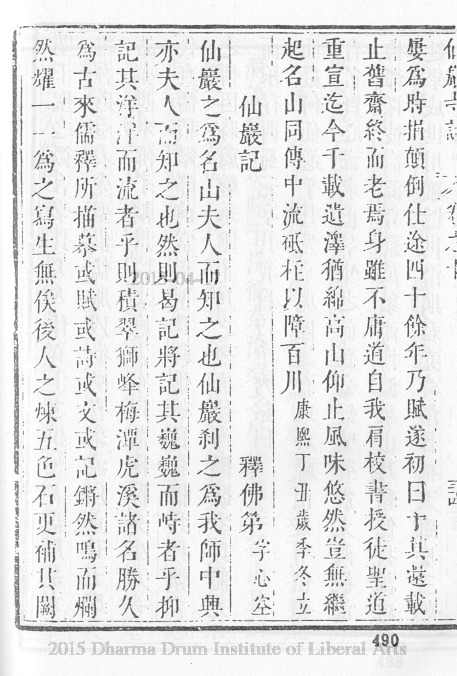 屢爲時捐顛倒仕途四十餘年乃賦遂初日卜其遊載
止舊齋終而老焉身雖不庸道自我肩校書授徒聖道
重宣迄今千載遺澤猶綿高山仰止風味悠然豈無繼
起名山同傳中流砥柱以障百川 康熙丁丑歲季冬立
仙巖記 釋佛第 字心空
仙巖之爲名山夫人而知之也仙巖刹之爲我師中興
亦夫人而知之也然則曷記將記其巍巍而峙者乎抑
記其洋洋而流者乎則積翠獅峰梅潭虎溪諸名勝久
爲古來儒釋所描摹或賦或詩或文或記鏘然鳴而爛
然耀一一爲之寫生無俟後人之煉五色石更補其闕
490
2015 Dharma Drum Institute of Liberal Arts